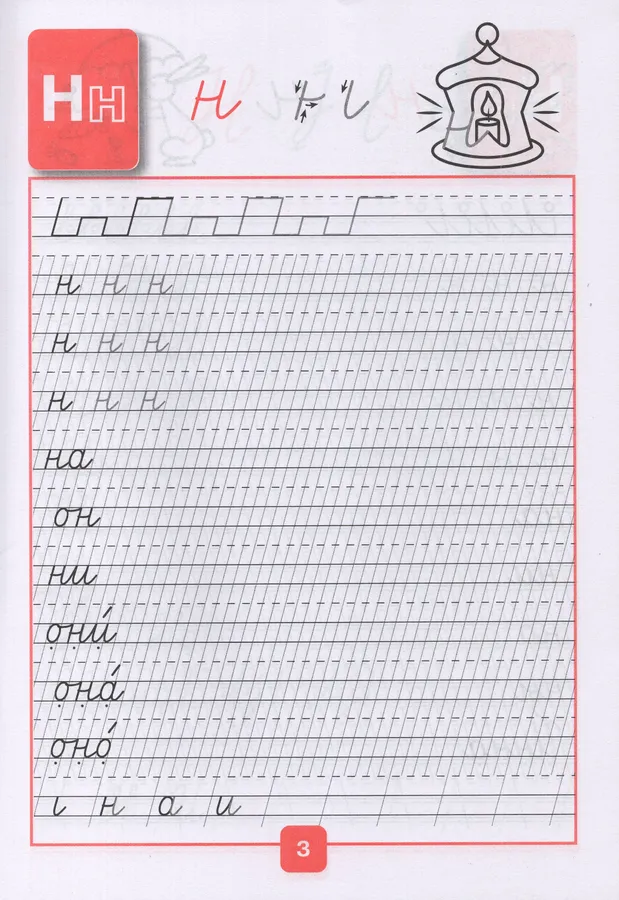 Н н
н
н н н
н н н
н н н
на
он
ни
они́
она́
оно́
ι н а и
3